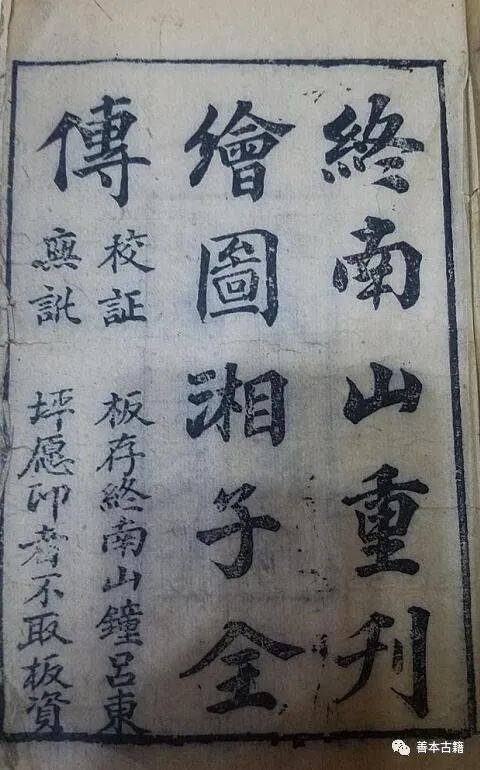 終南山重刊
繪圖湘子全
傳
校証
無訛
板存終南山鐘呂東
坪愿印者不取板資
善本古籍